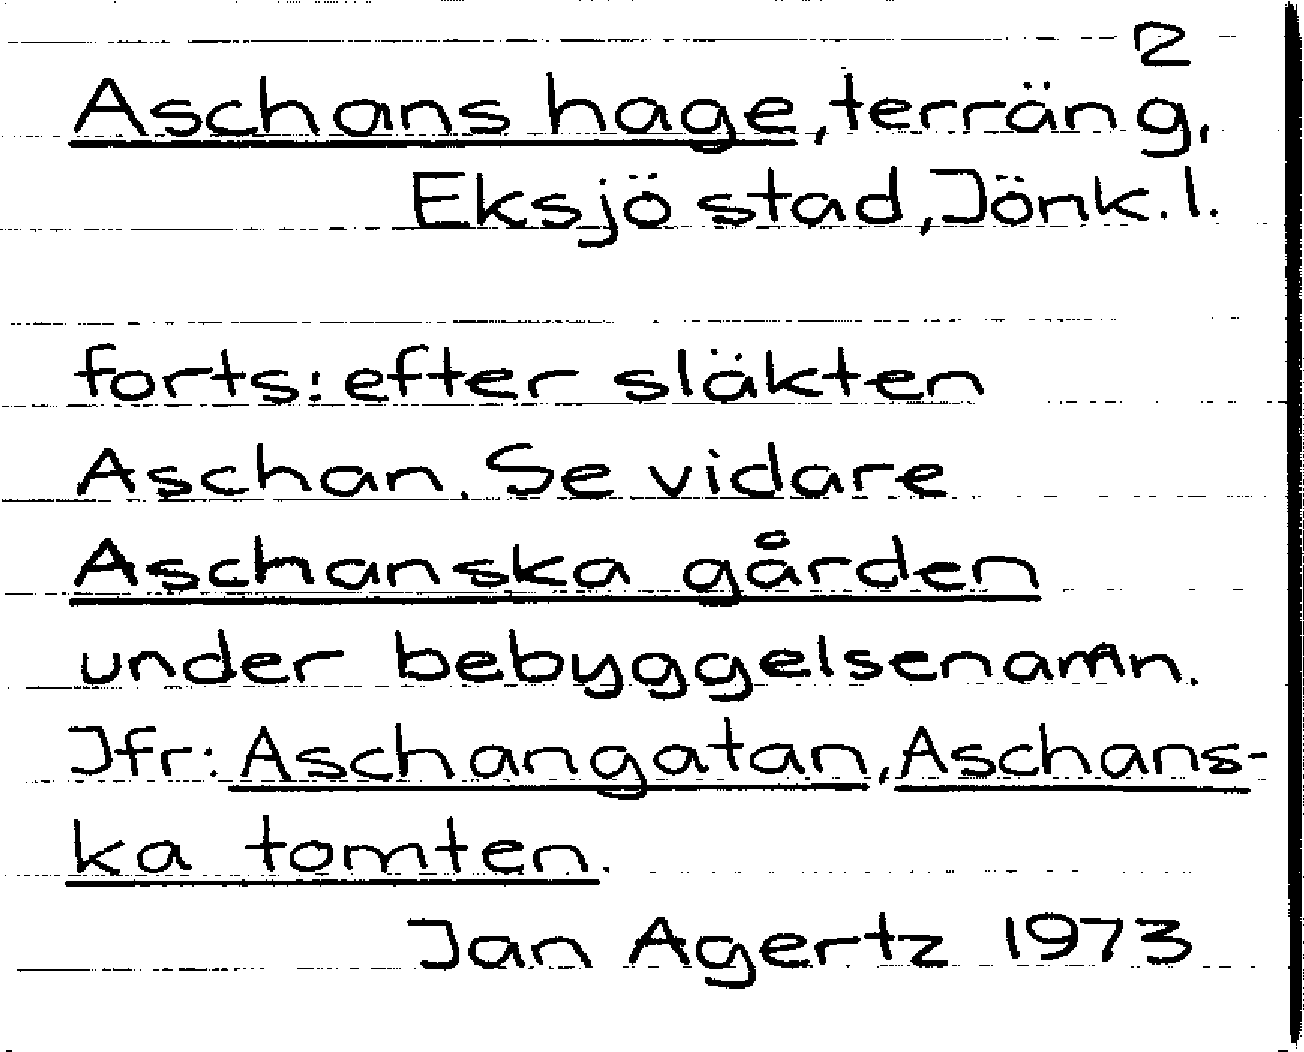 2
Aschans hage, terräng,
Eksjö stad, Jönk. l.
forts: efter släkten
Aschan. Se vidare
Aschanska gården
under bebyggelsenamn.
Jfr: Aschangatan, Aschans-
ka tomten.
Jan Agertz 1973